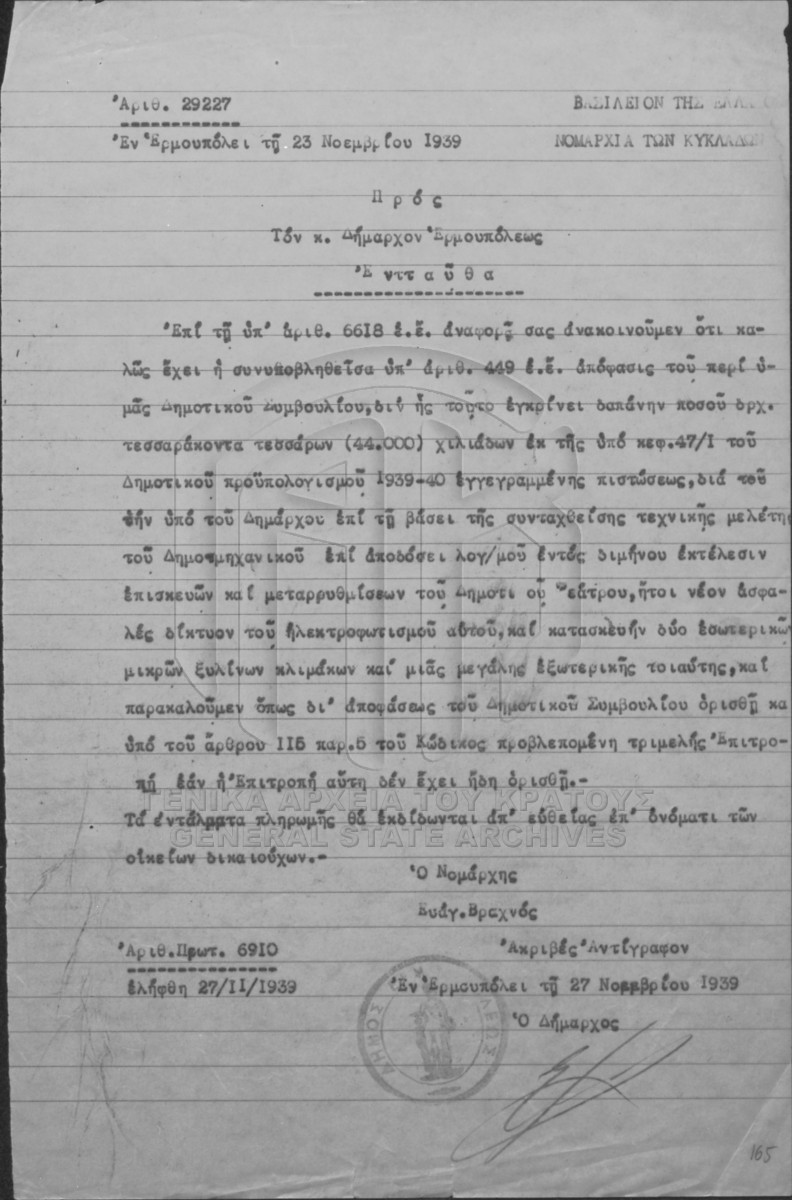 Ἀριθ. 29227
ΒΑΣΙΛΕΙΟΝ ΤΗΣ
Ἐν Ἑρμουπόλει τῇ 23 Νοεμβρίου 1939
ΝΟΜΑΡΧΙΑ ΤΩΝ ΚΥΚΛΑΔΩΝ
Π ρ ό ς
Τόν κ. Δήμαρχον Ἑρμουπόλεως
Ἐ ντταῦθα
Ἐπί τῇ ὑπ' ἀριθ. 6618 ἐ.ἔ. ἀναφορᾷ σας ἀνακοινοῦμεν ὅτι κα-
λῶς ἔχει ἡ συνυποβληθεῖσα ὑπ' ἀριθ. 449 ἐ.ἔ. ἀπόφασις τοῦ περί ὑ-
μᾶς Δημοτικοῦ Συμβουλίου, δι' ἧς τοῦτο ἐγκρίνει δαπάνην ποσοῦ δρχ.
τεσσαράκοντα τεσσάρων (44.000) χιλιάδων ἐκ τῆς ὑπό κεφ.47/1 τοῦ
Δημοτικοῦ προϋπολογισμοῦ 1939-40 ἐγγεγραμμένης πιστώσεως, διά τοῦ
τήν ὑπό τοῦ Δημάρχου ἐπί τῇ βάσει τῆς συνταχθείσης τεχνικῆς μελέτης
τοῦ Δημοτμηχανικοῦ ἐπί ἀποδόσει λογ/μοῦ ἐντός διμήνου ἐκτέλεσιν
ἐπισκευῶν καί μεταρρυθμίσεων τοῦ Δημοτι οῦ Θεάτρου, ἤτοι νέον ἀσφα-
λές δίκτυον τοῦ ἠλεκτροφωτισμοῦ αὐτοῦ, καί κατασκευήν δύο ἐσωτερικῶν
μικρῶν ξυλίνων κλιμάκων καί μιᾶς μεγάλης ἐξωτερικῆς τοιαύτης, καί
παρακαλοῦμεν ὅπως δι' ἀποφάσεως τοῦ Δημοτικοῦ Συμβουλίου ὁρισθῇ κα
ὑπό τοῦ ἄρθρου 115 παρ.5 τοῦ Κώδικος προβλεπομένη τριμελής Ἐπιτρο-
πή ἐάν ἡ Ἐπιτροπή αὕτη δέν ἔχει ἤδη ὁρισθῇ.-
ΓΕΝΙΚΑ ΑΡΧΕΙΑ ΤΟΥ ΚΡΑΤΟΥΣ
Τά ἐντάλματα πληρωμῆς θά ἐκδίδωνται ἀπ' εὐθείας ἐπ' ὀνόματι τῶν
GENERAL STATE ARCHIVES
οἰκείων δικαιούχων.-
Ὁ Νομάρχης
Εὐάγ. Βραχνός
Ἀριθ. Πρωτ. 6910
Ἀκριβές Ἀντίγραφον
ἐλήφθη 27/11/1939
Ἐν Ἑρμουπόλει τῇ 27 Νοεμβρίου 1939
Ὁ Δήμαρχος
ΔΗΜΟΣ
165